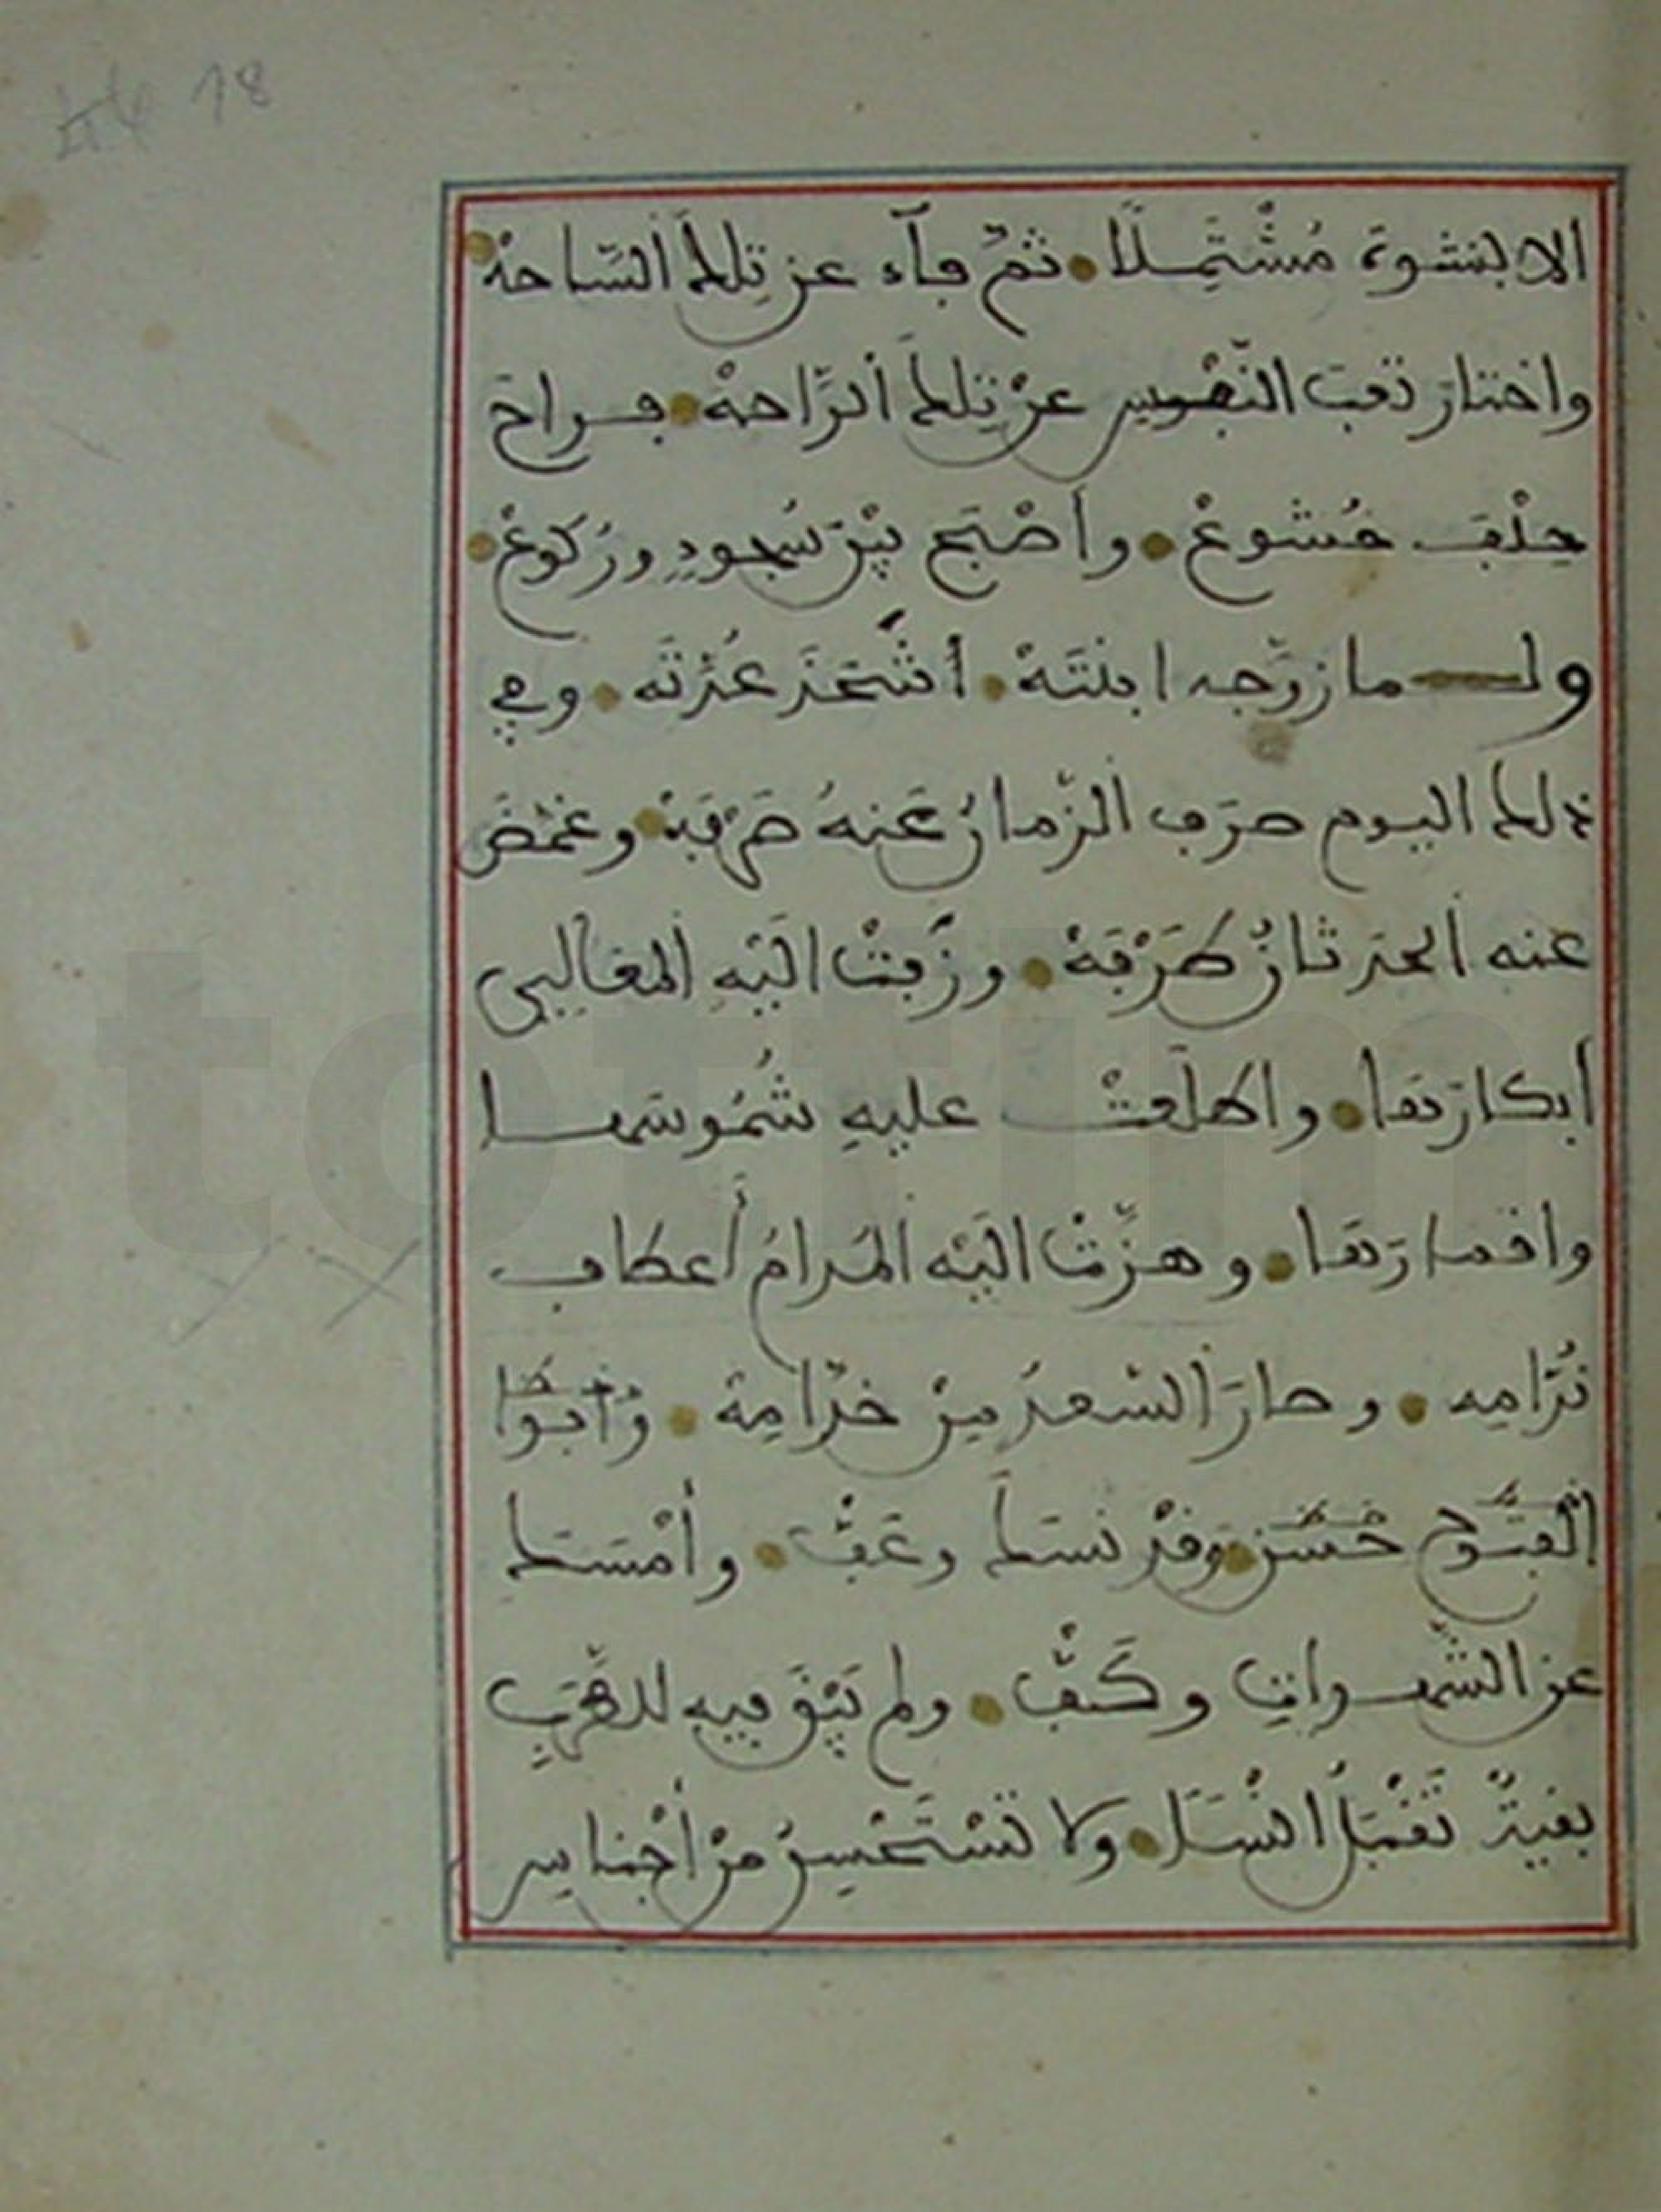 18
الا بنشوة مُشْتَمِلًا ثمّ فآء عن تِلكَ السَّاحهْ
واختارَ تعبَ النّفوس عنْ تِلكَ الرَّاحهْ فراحَ
حِلْفَ خُشوعْ وأصْبَح بيْنَ سُجودٍ ورُكوعْ
ولما زوّجه ابنتَهْ أنشَدَ عُرْته وفي
ذلك اليوم صرَف الزّمانُ عَنهُ صَرْفَهْ وغمّضَ
عنه الحدثانُ طَرْفَهْ وزُفّتْ اليْهِ المعَالي
أبكارَها واطلَعتْ عليهِ شُمُوسَها
واقمارَها وهزّتْ اليْه المرامُ أعطاف
نُدّامِه وصارَ السّعدُ مِنْ خدّامِهْ وابوا
الفتوح حسن وقدْ نسَكَ وعَفّ وأمْسَكَ
عن الشّهواتِ وكَفّ ولم يَبْقَ فيهِ للطّرَبِ
بقيةٌ تقْبَلُ النّسَكَ ولا تَسْتَحْسِنُ منْ أجْناسِ